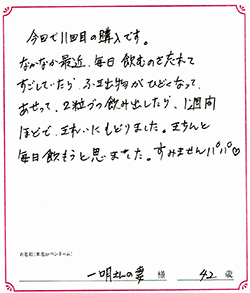 今回で11回目の購入です。
なかなか最近、毎日飲むのを忘れて
すごしていたら、ふき出物がひどくなって、
あせって、2粒づつ飲み出したら、1週間
ほどで、きれいにもどりました。きちんと
毎日飲もうと思いました。すみませんパパ♡
お名前(本名orペンネーム)
一明さんの妻 様 42 歳